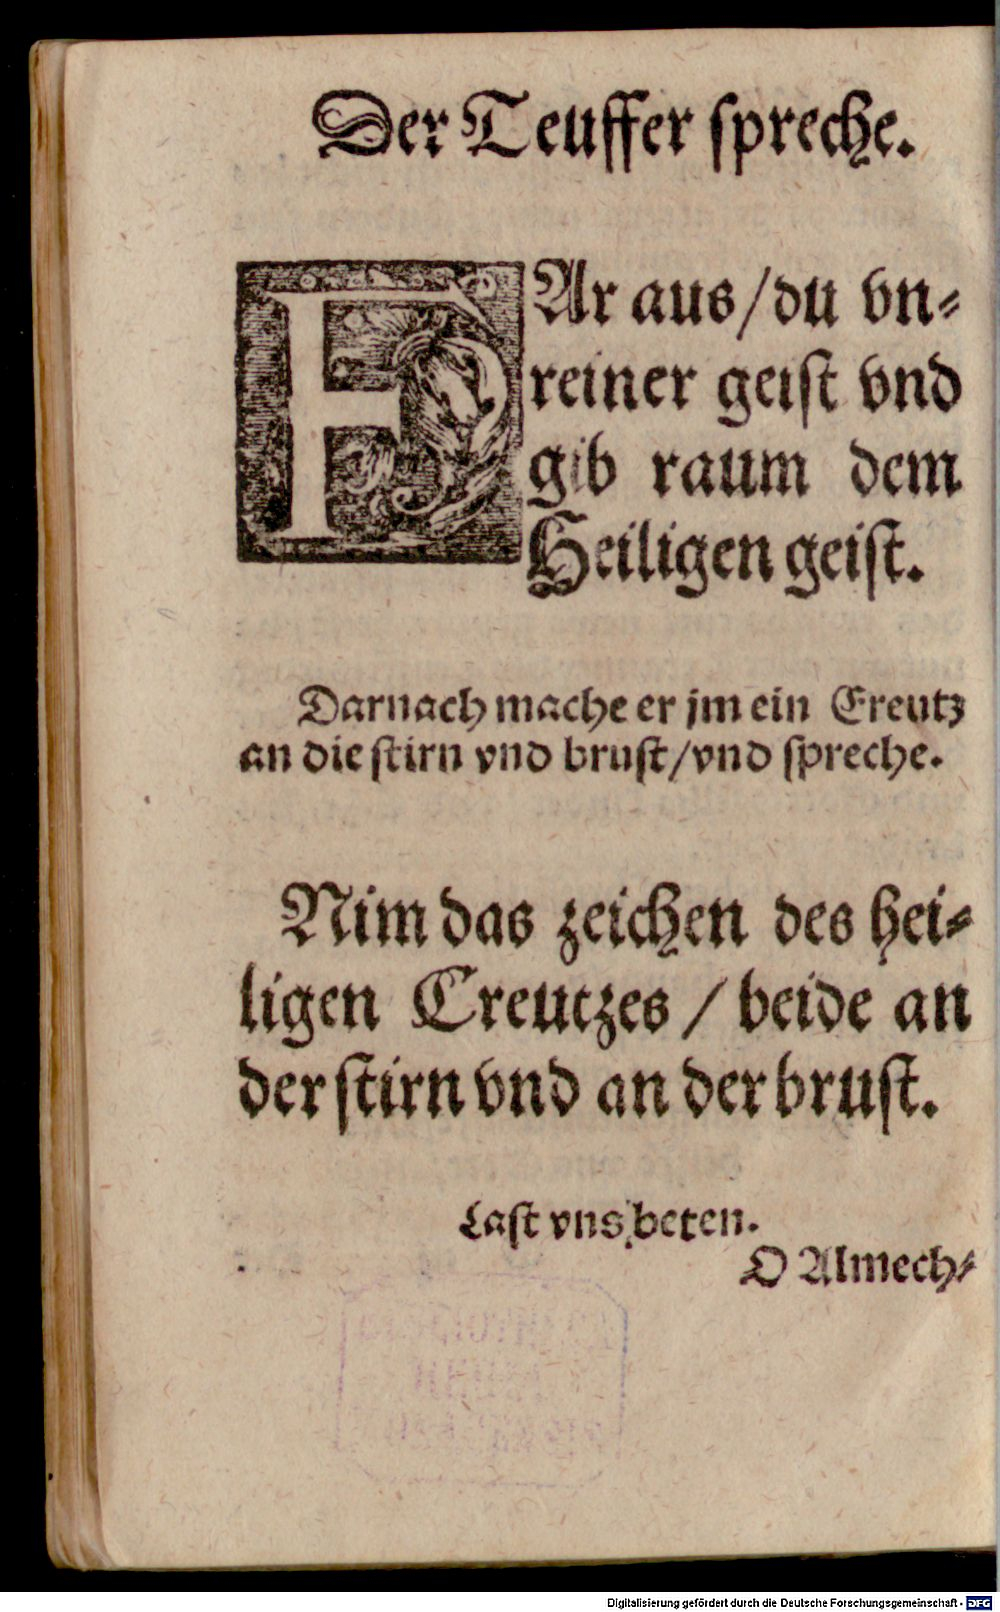 Der Teuffer spreche.
FAr aus/du vn-
reiner geist vnd
gib raum dem
Heiligen geist.
Darnach mache er jm ein Creutz
an die stirn vnd brust/vnd spreche.
Nim das zeichen des hei-
ligen Creutzes / beide an
der stirn vnd an der brust.
Last vns beten.
O Almech-
Digitalisierung gefördert durch die Deutsche Forschungsgemeinschaft - DFG